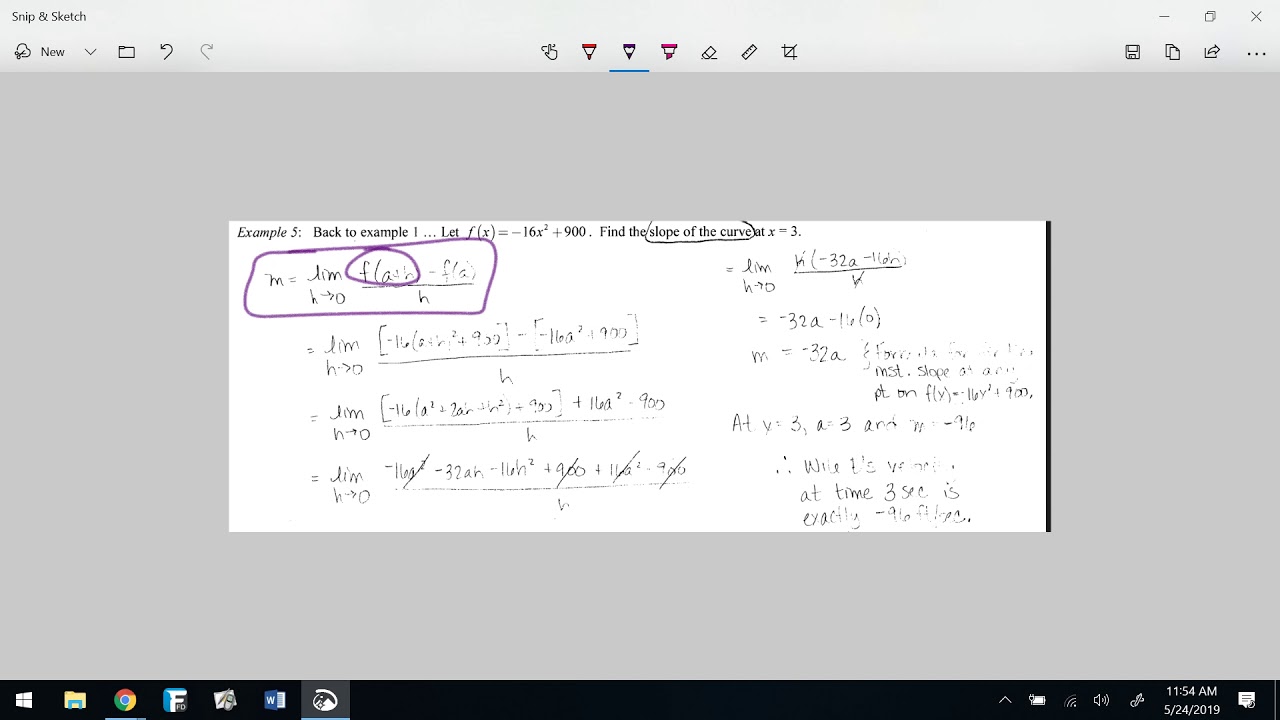 Snip & Sketch
New
Example 5: Back to example 1 … Let f(x) = −16x² + 900. Find the slope of the curve at x = 3.
m = lim h→0 f(a+h) - f(a) / h
= lim h→0 [-16(a+h)²+900] - [-16a²+900] / h
= lim h→0 [-16(a²+2ah+h²)+900] + 16a² - 900 / h
= lim h→0 -16a² -32ah -16h² +900 + 16a² - 900 / h
= lim h→0 h(-32a-16h) / h
= -32a-16(0)
m = -32a { Formula for
inst. slope at any
pt on f(x)=-16x²+900.
At x=3, a=3 and m=-96
∴ Wile E's velocity
at time 3 sec is
exactly -96 ft/sec.
11:54 AM
5/24/2019